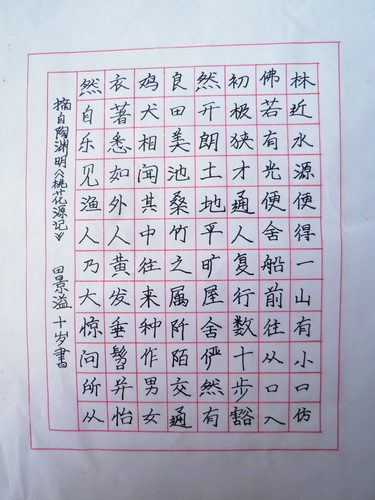 林近水源便得一山有小口仿
佛若有光便舍船前往从口入
初极狭才通人复行数十步豁
然开朗土地平旷屋舍俨然有
良田美池桑竹之属阡陌交通
鸡犬相闻其中往来种作男女
衣著悉如外人黄发垂髫并怡
然自乐见渔人乃大惊问所从
摘自陶渊明《桃花源记》 田景溢 十岁書